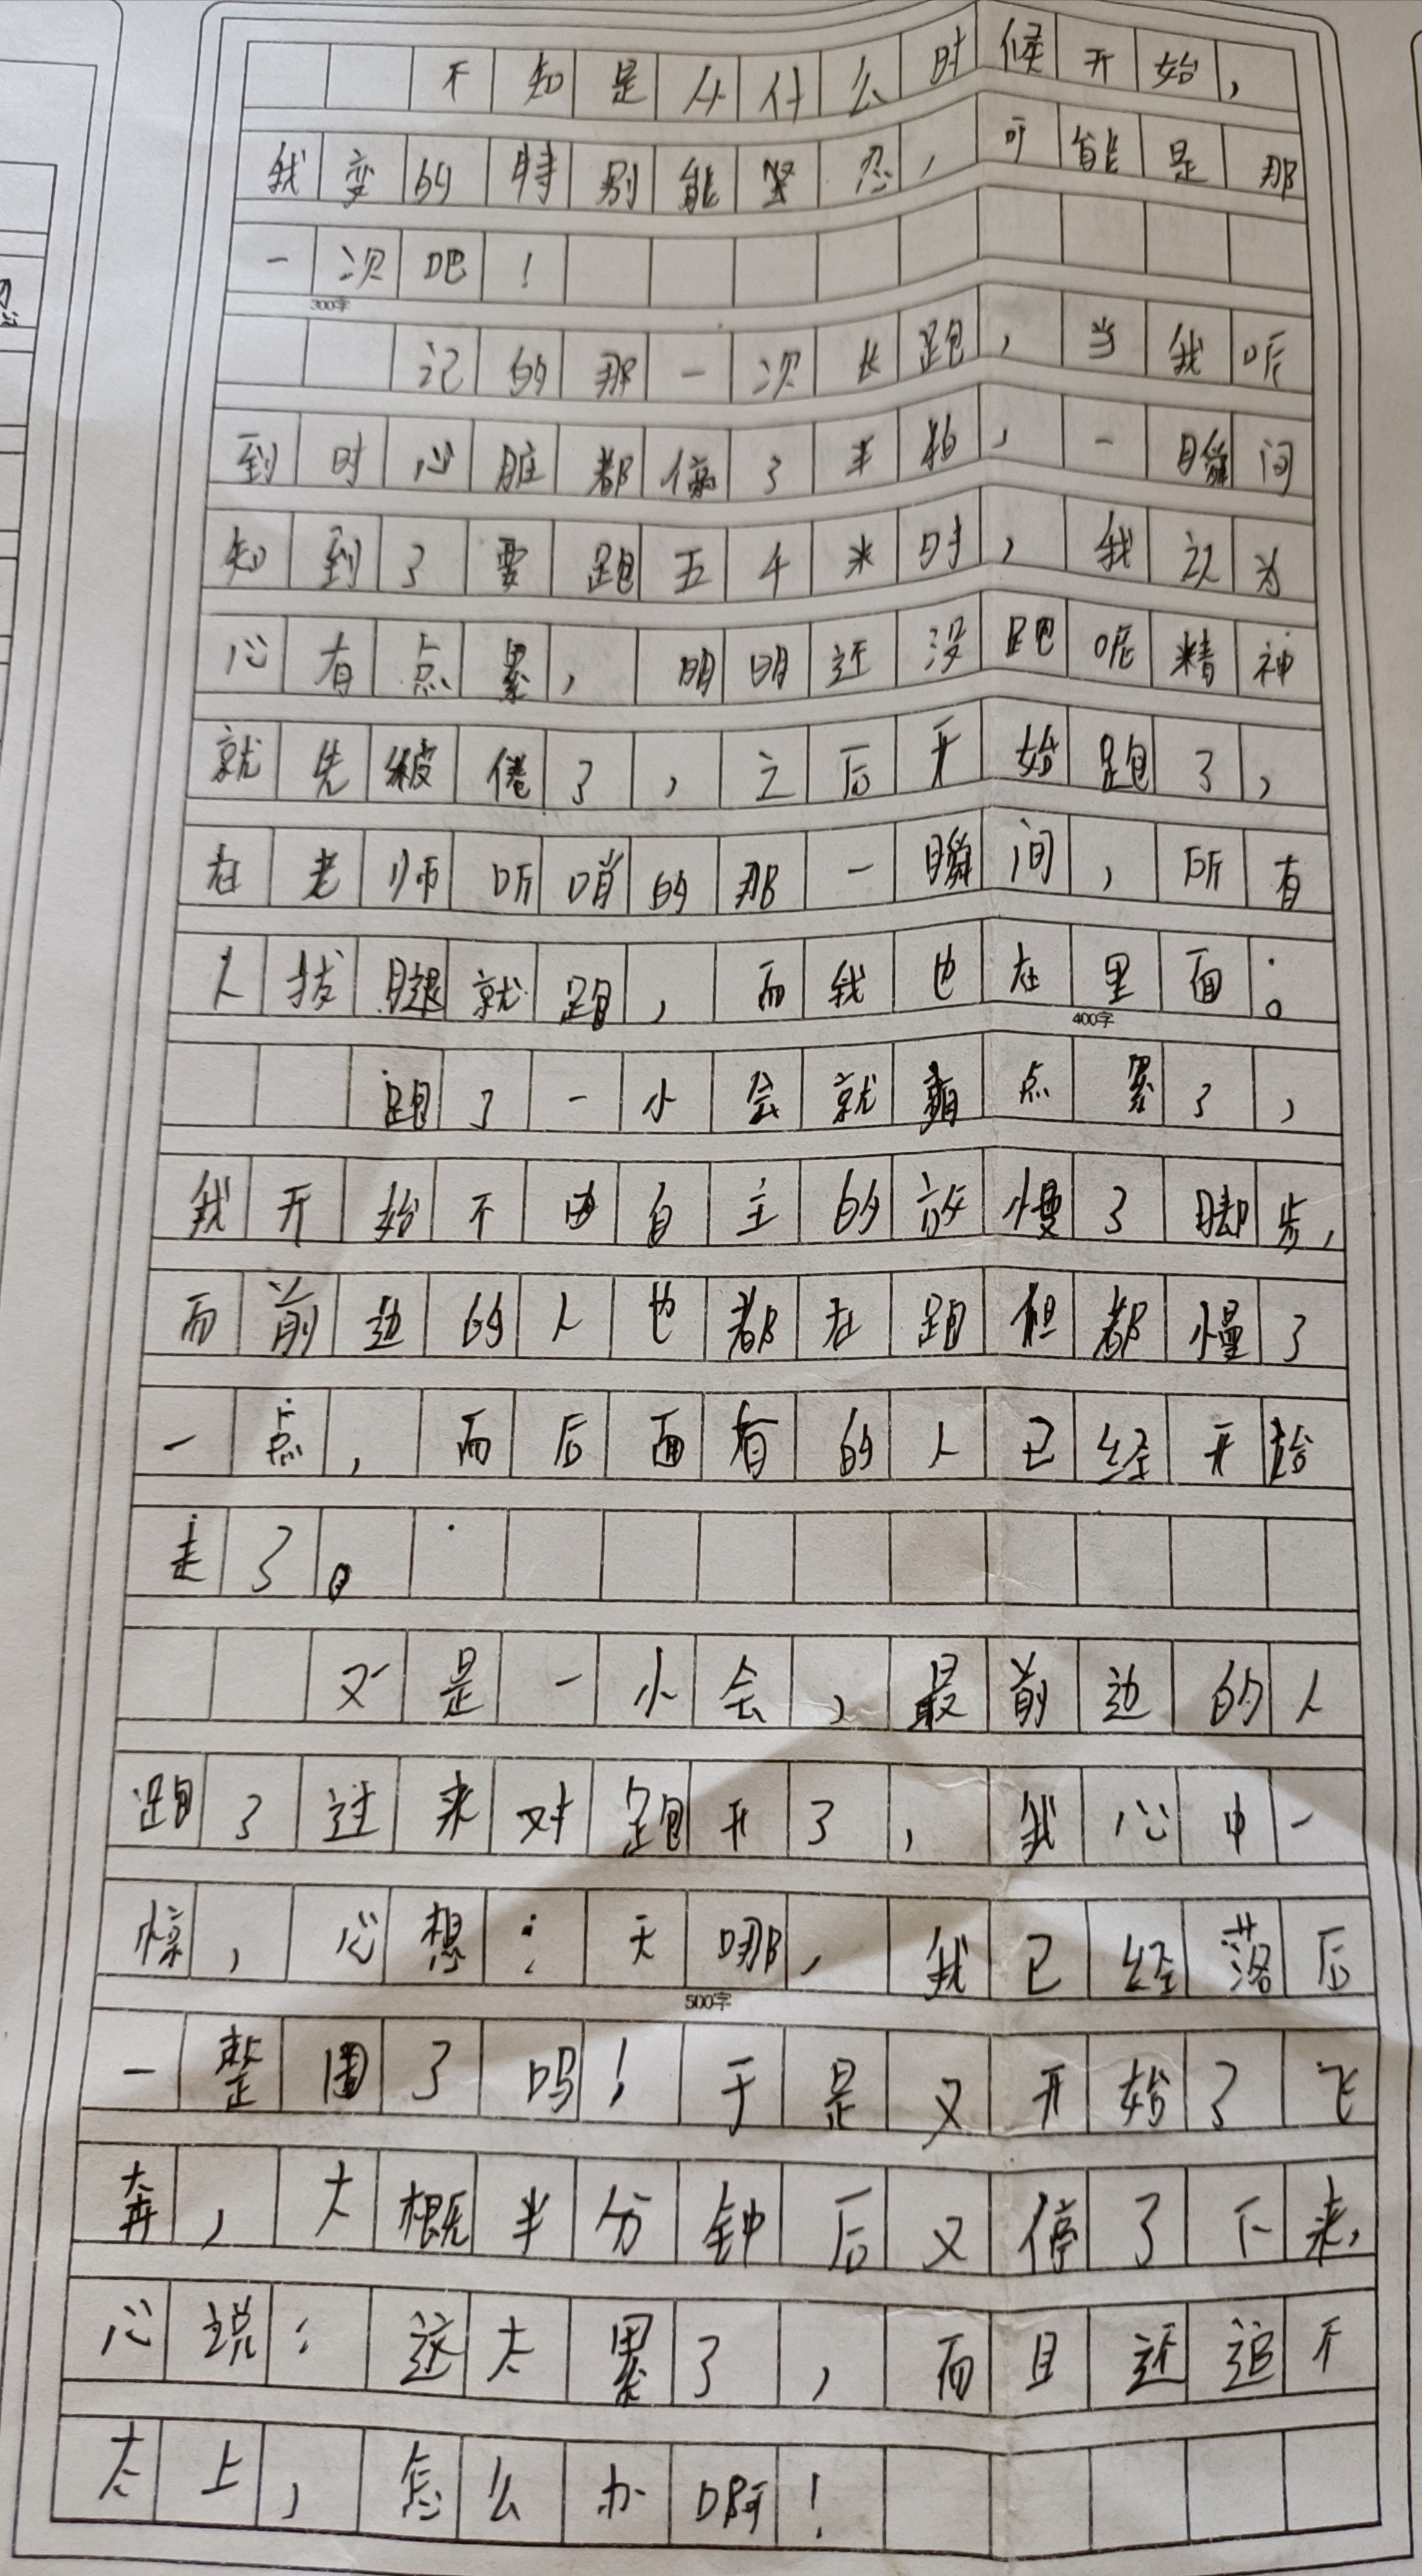 不知是从什么时候开始，
我变的特别能坚忍，可能是那
一次吧！
300字
记的那一次长跑，当我听
到时心脏都停了半拍，一瞬间
知到了要跑五千米时，我认为
心有点累，明明还没跑呢精神
就先疲倦了，之后开始跑了，
在老师吹哨的那一瞬间，所有
人拔腿就跑，而我也在里面。
400字
跑了一小会就有点累了，
我开始不由自主的放慢了脚步，
而前边的人也都在跑但都慢了
一点，而后面有的人已经开始
走了。
又是一小会，最前边的人
跑了过来对跑开了，我心中一
惊，心想：天哪，我已经落后
500字
一整圈了吗！于是又开始了飞
奔，大概半分钟后又停了下来，
心说：这太累了，而且还追不
太上，怎么办啊！